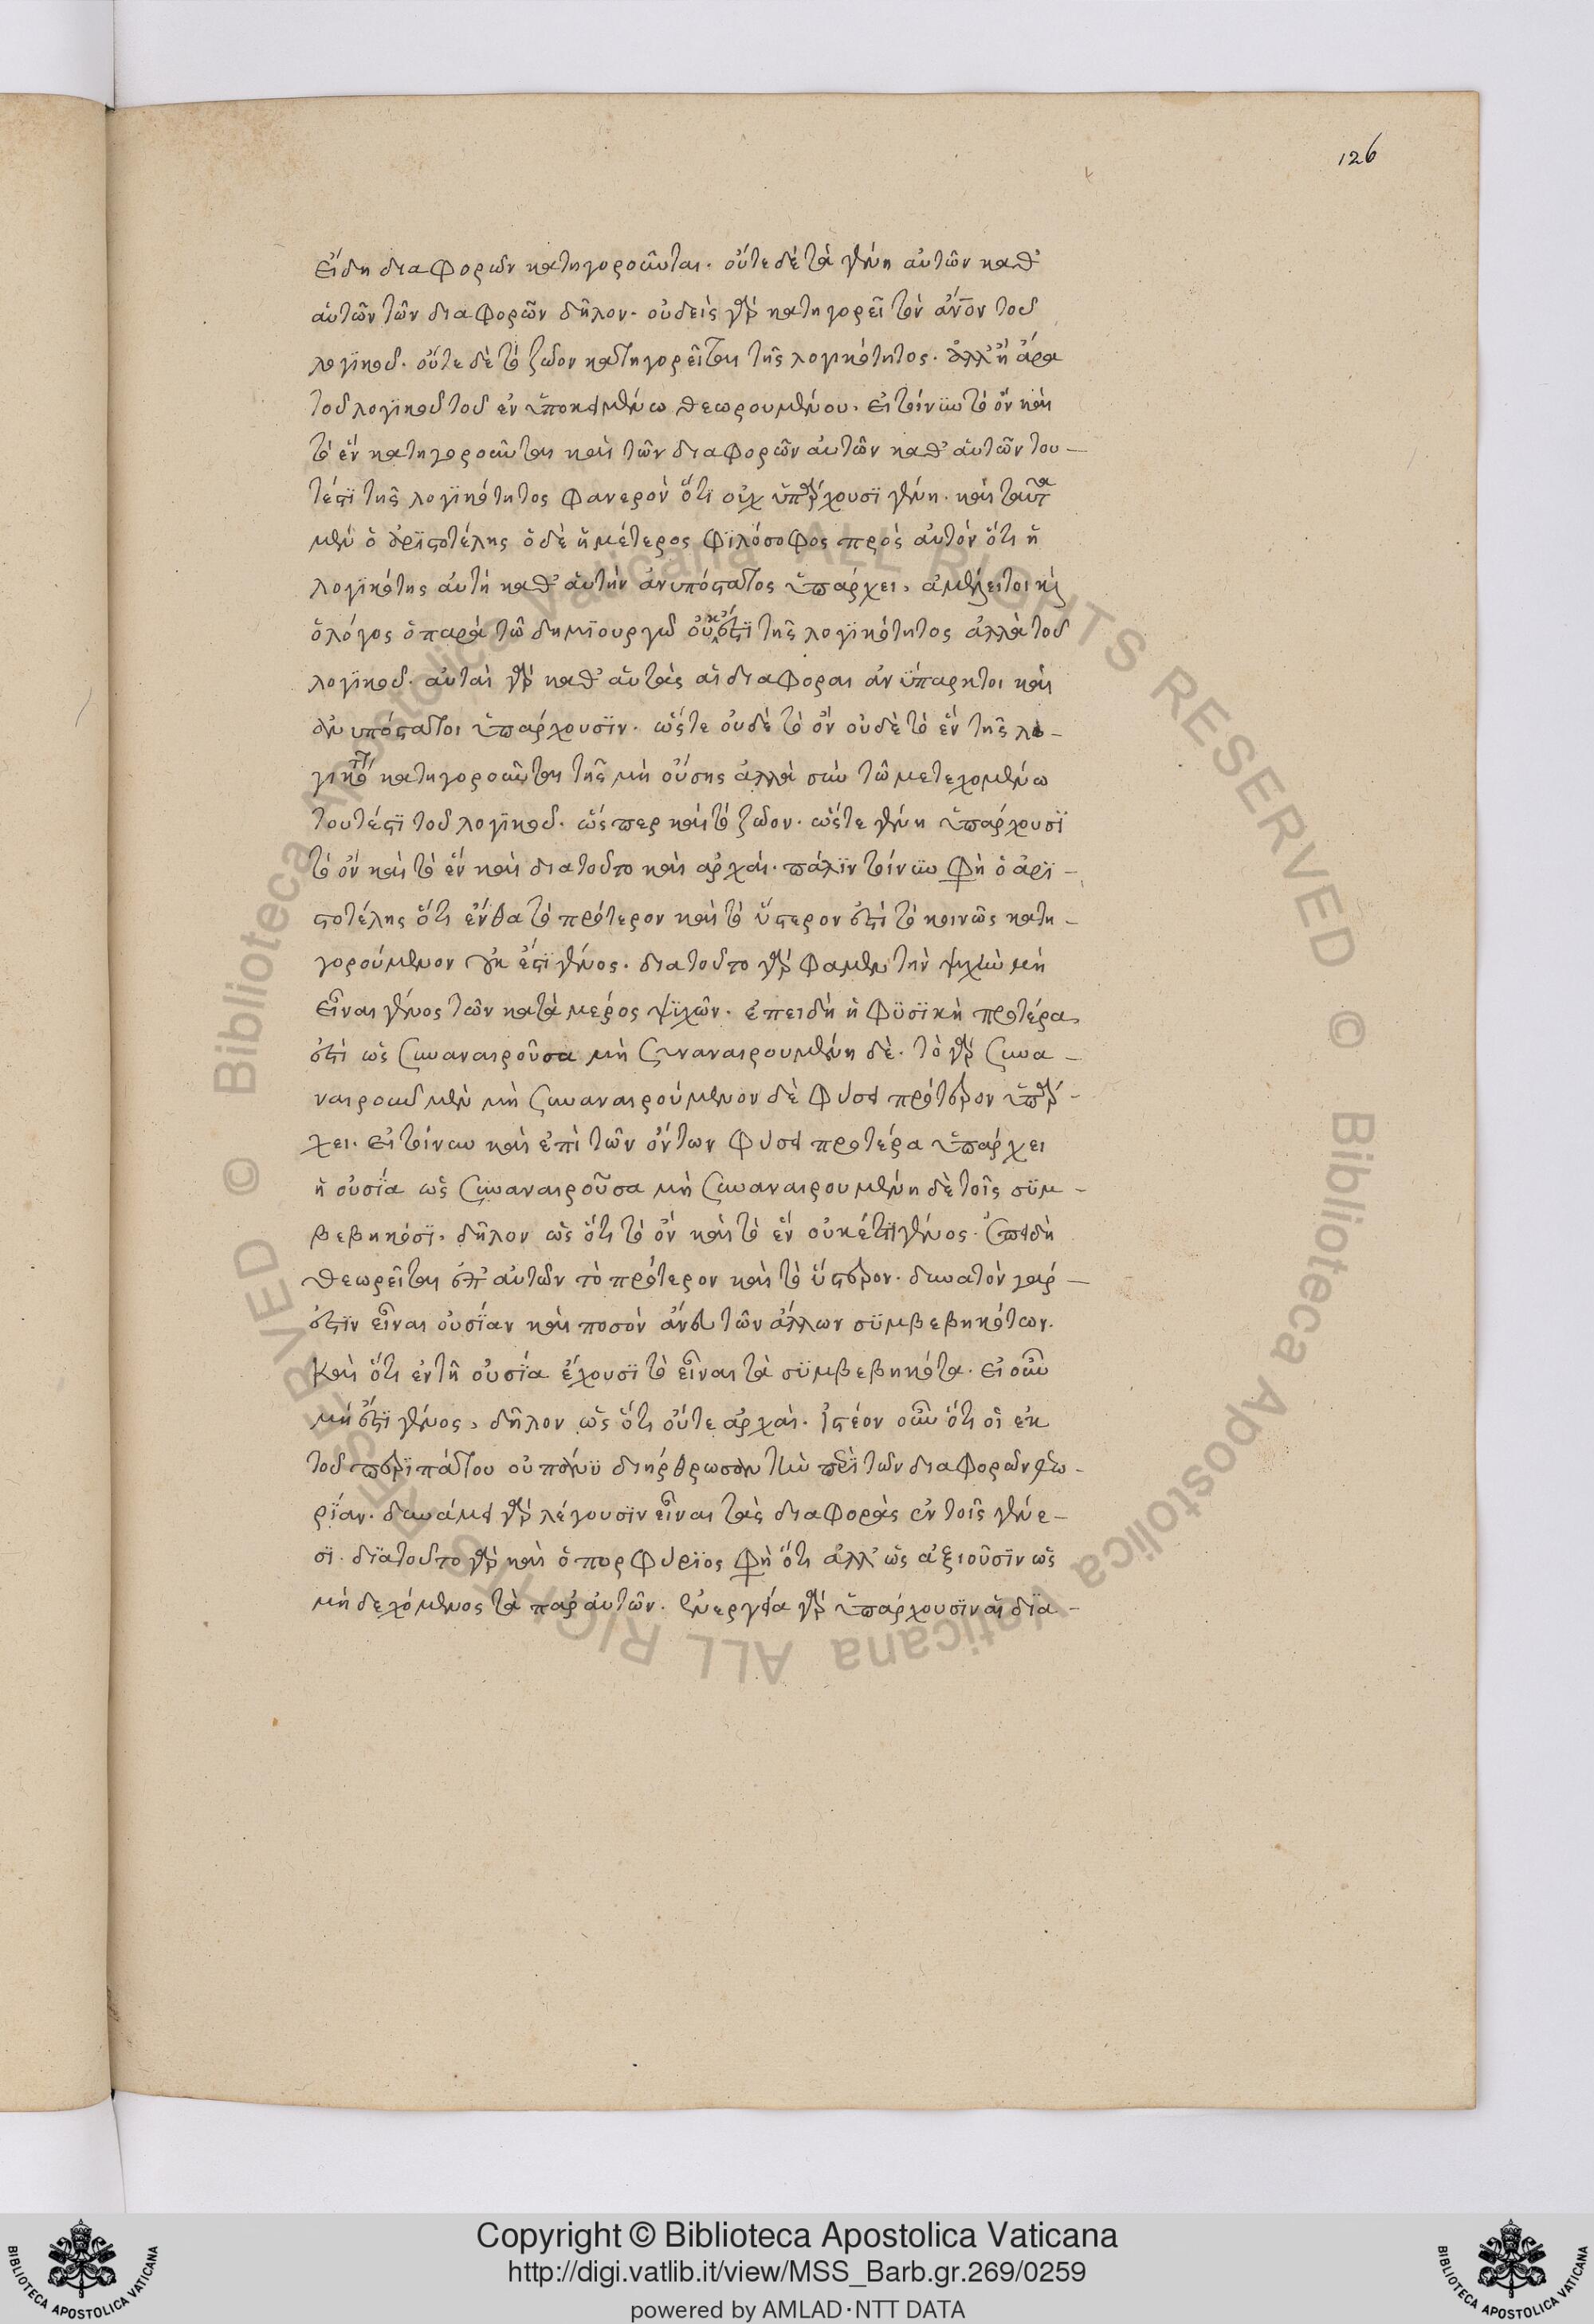 126
εἴδη διαφορῶν κατηγοροῦνται. οὔτε δὲ τὰ γένη αὐτῶν καθ'
αὑτῶν τῶν διαφορῶν δῆλον. οὐδεὶς γὰρ κατηγορεῖ τὸν ἄνον τοῦ
λογϊκοῦ. οὔτε δὲ τὸ ζῶον κατηγορεῖται τῆς λογικότητος. ἀλλ' ἢ ἄρα
τοῦ λογϊκοῦ τοῦ ἐν ὑποκειμένω θεωρουμένου. εἰ τοίνϋν τὸ ὂν καὶ
τὸ ἓν κατηγοροῦνται καὶ τῶν διαφορῶν αὐτῶν καθ' αὑτῶν του-
τέστϊ τῆς λογϊκότητος φανερὸν ὅτϊ οὐχ ὑπάρχουσϊ γένη. καὶ ταῦτα
μὲν ὁ ἀρϊστοτέλης ὁ δὲ ἡμέτερος φϊλόσοφος πρὸς αὐτὸν ὅτι ἡ
λογϊκότης αὐτὴ καθ' αὑτὴν ἀνυπόστατος ὑπάρχει, ἀμέλειτοι καὶ
ὁ λόγος ὁ παρὰ τῶ δημϊουργῶ οὐκ ἔστϊ τῆς λογϊκότητος ἀλλὰ τοῦ
λογϊκοῦ. αὐταὶ γὰρ καθ' αὑτὰς αἱ διαφοραι ἀνύπαρκτοι καὶ
ἀνυπόστατοι ὑπάρχουσϊν. ὥστε οὐδὲ τὸ ὂν οὐδὲ τὸ ἓν τῆς λο-
γικότητος κατηγοροῦνται τῆς μὴ οὔσης ἀλλὰ σὺν τῶ μετεχομένω
τουτέστϊ τοῦ λογϊκοῦ. ὥσπερ καὶ τὸ ζῶον. ὥστε γένη ὑπάρχουσϊ
τὸ ὂν καὶ τὸ ἓν καὶ διατοῦτο καὶ ἀρχαί. πάλϊν τοίνϋν φὴ ὁ ἀρϊ-
στοτέλης ὅτι ἔνθα τὸ πρότερον καὶ τὸ ὕστερον ἐστὶ τὸ κοινῶς κατη-
γορούμενον οὐκ ἔστϊ γένος. διατοῦτο γὰρ φαμὲν τὴν ψυχὴν μὴ
εἶναι γένος τῶν κατὰ μέρος ψϋχῶν. ἐπειδὴ ἡ φϋσϊκὴ προτέρα
ἐστὶ ὡς συναναιροῦσα μὴ συναναιρουμένη δὲ. τὸ γὰρ συνα-
ναιροῦν μὲν μὴ συναναιρούμενον δὲ φύσει πρότερον ὑπάρ-
χει. εἰ τοίνυν καὶ ἐπὶ τῶν ὄντων φύσει προτέρα ὑπάρχει
ἡ οὐσΐα ὡς συναναιροῦσα μὴ συναναιρουμένη δὲ τοῖς σϋμ-
βεβηκόσϊ. δῆλον ὡς ὅτι τὸ ὂν καὶ τὸ ἓν οὐκέστϊ γένος. ἐπειδὴ
θεωρεῖται ἐπ' αὐτῶν τὸ πρότερον καὶ τὸ ὕστερον. δυνατὸν γάρ
ἐστϊν εἶναι οὐσΐαν καὶ ποσὸν ἄνευ τῶν ἄλλων σϋμβεβηκότων.
καὶ ὅτι ἐν τῆ οὐσΐα ἔχουσϊ τὸ εἶναι τὰ σϋμβεβηκότα. εἰ οὖν
μὴ ἔστϊ γένος, δῆλον ὡς ὅτι οὔτε ἀρχαί. ἰστέον οὖν ὅτι οἱ ἐκ
τοῦ περϊπάτου οὐ πάνϋ διήρθρωσαν τὴν περὶ τῶν διαφορῶν θεω-
ρΐαν. δυνάμει γὰρ λέγουσϊν εἶναι τὰς διαφορὰς ἐν τοῖς γένε-
σϊ. δϊατοῦτο γὰρ καὶ ὁ πορφύρϊος φὴ ὅτι ἀλλ' ὡς ἀξιοῦσϊν ὡς
μὴ δεχόμενος τὰ παρ' αὐτῶν. ἐνεργεία γὰρ ὑπάρχουσϊν αἱ δϊα-
Copyright © Biblioteca Apostolica Vaticana
http://digi.vatlib.it/view/MSS_Barb.gr.269/0259
powered by AMLAD·NTT DATA